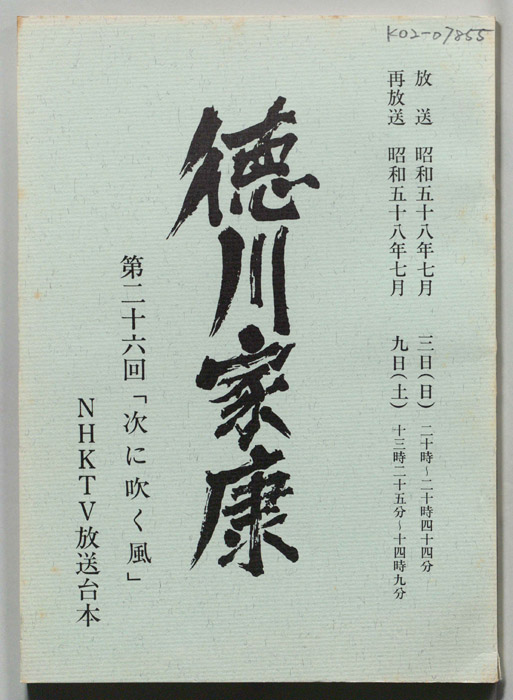 K02-07855
放送 昭和五十八年七月 三日(日) 二十時~二十時四十四分
再放送 昭和五十八年七月 九日(土) 十三時二十五分~十四時九分
徳川家康
第二十六回「次に吹く風」
NHKTV放送台本